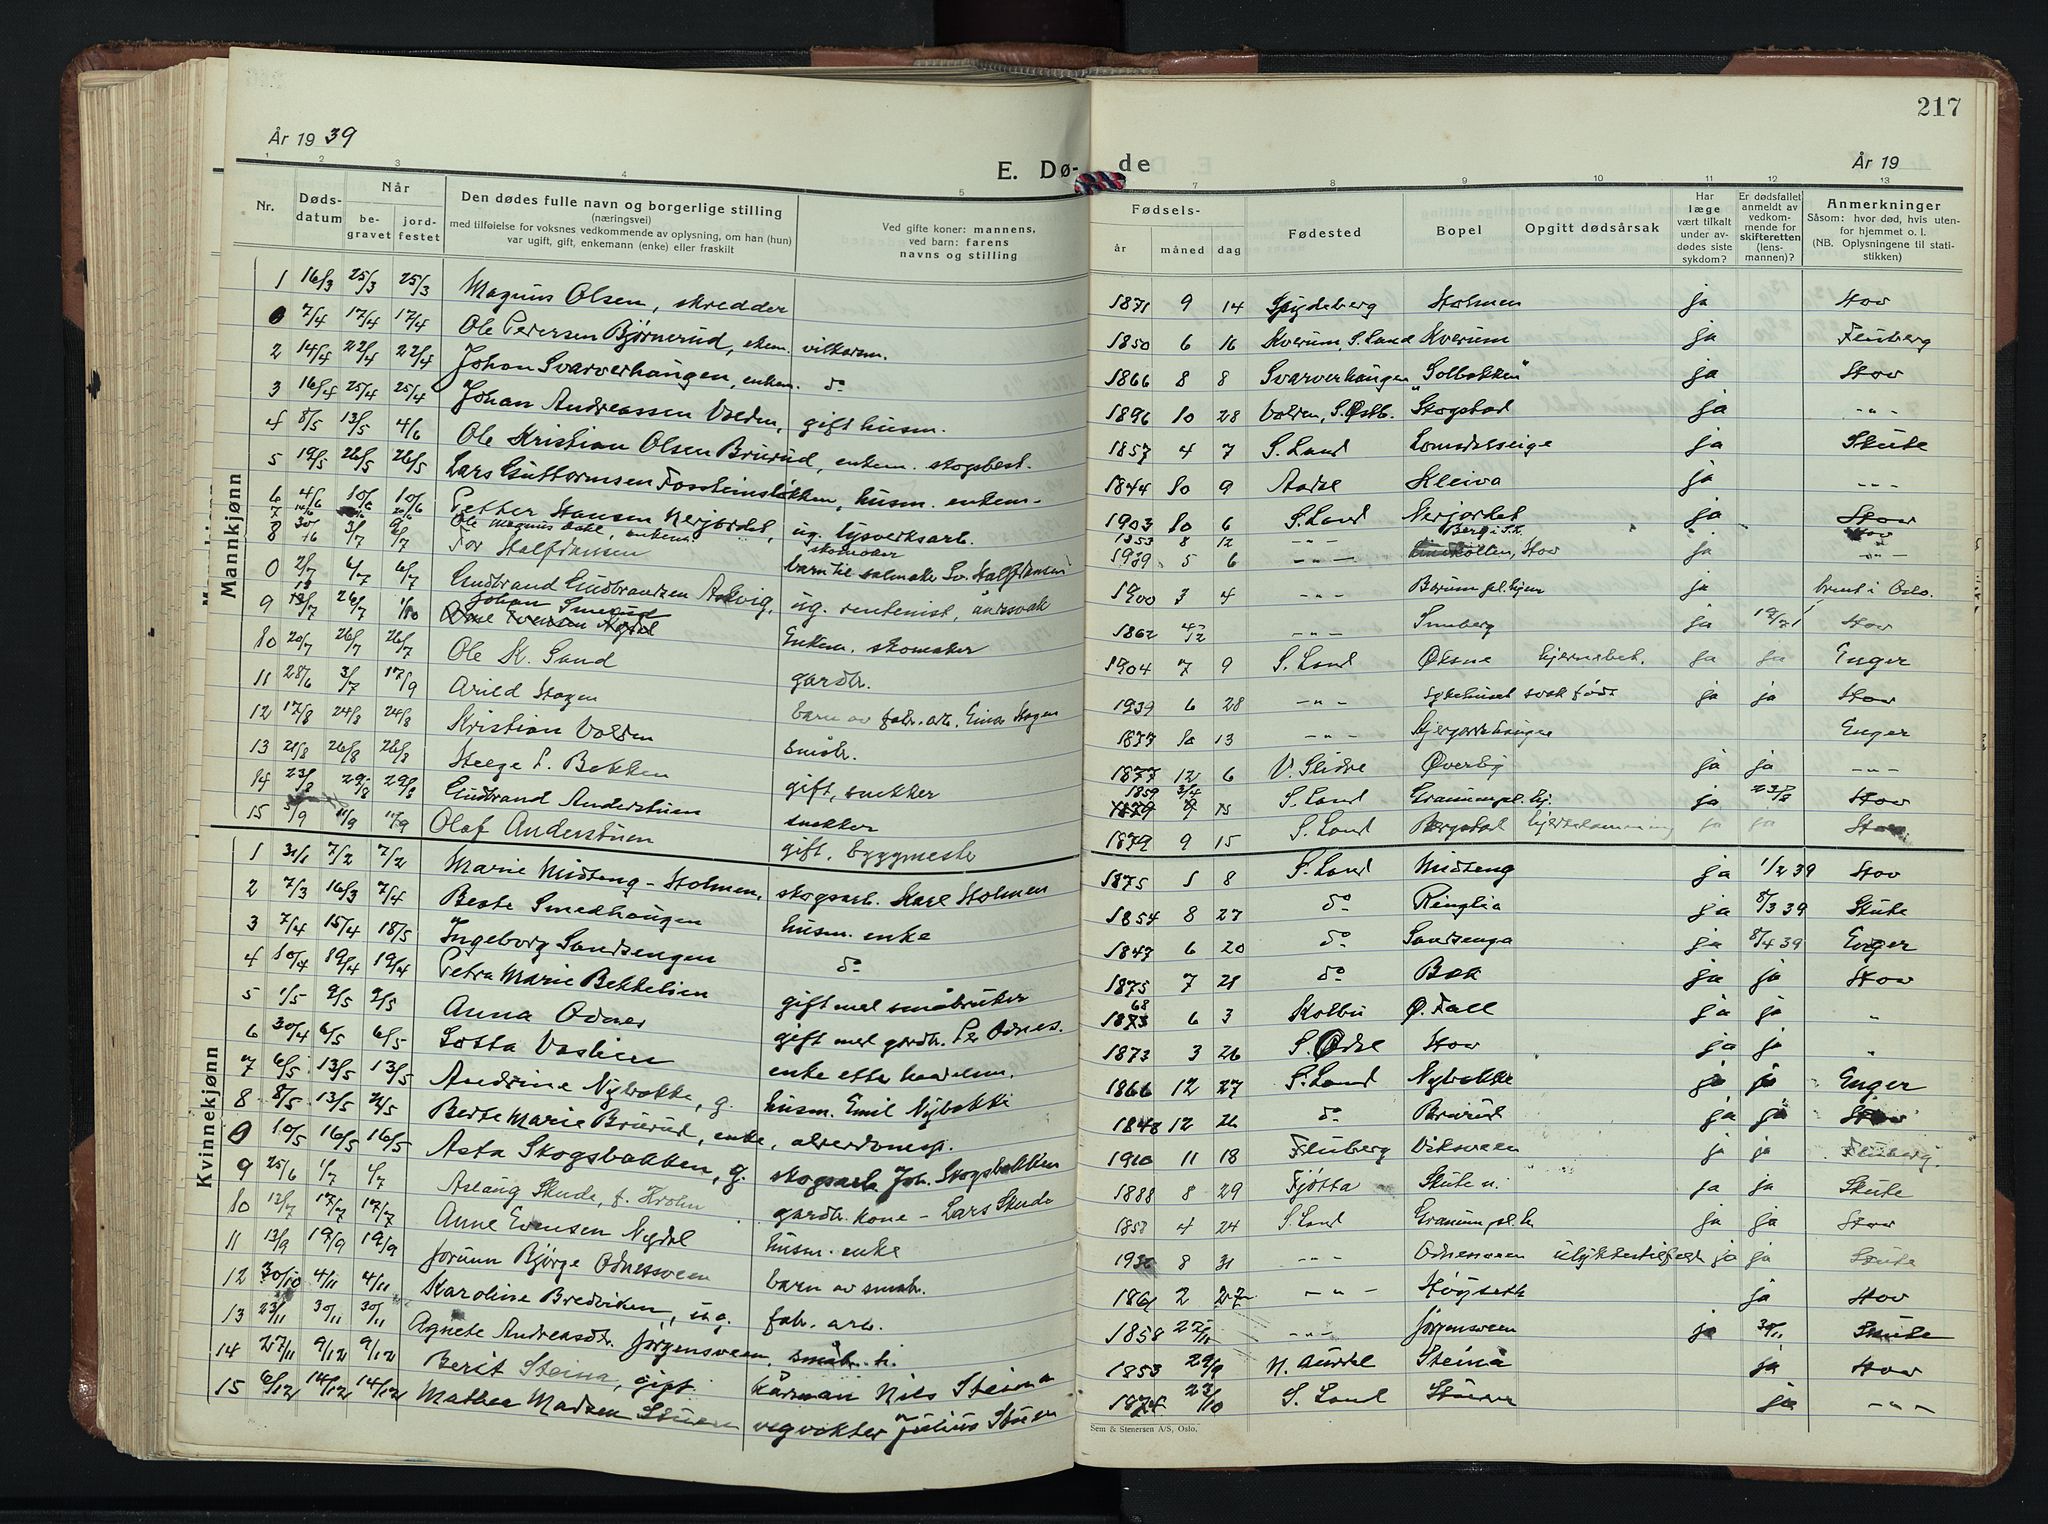 217
År 1939
År 19
E. Dø-
de
1 2 3 4 5
7 8 9 10 11 12 13
Nr.
Døds-
datum
Når
be-
gravet
jord-
festet
Den dødes fulle navn og borgerlige stilling
(næringsvei)
med tilføielse for voksnes vedkommende av oplysning, om han (hun)
var ugift, gift, enkemann (enke) eller fraskilt
Ved gifte koner: mannens,
ved barn: farens
navns og stilling
Fødsels-
år måned dag
Fødested
Bopel
Opgitt dødsårsak
Har
læge
vært tilkalt
under av-
dødes siste
sykdom?
Er dødsfallet
anmeldt av
vedkom-
mende for
skifteretten
(lens-
mannen)?
Anmerkninger
Såsom: hvor død, hvis uten-
for hjemmet o. l.
(NB. Oplysningene til stati-
stikken)
Mannkjønn
1 16/3 25/3 25/3 Magnus Olsen, skredder 1871 9 14 Spydeberg Holmen ja Hov
0 7/4 17/4 17/4 Ole Petersen Bjørnerud, enkem. vilkårsm. 1850 6 16 Kverum, S. Land Kverum ja Fluberg
2 14/4 22/4 22/4 Johan Svarverhaugen, enkem. do 1866 8 8 Svarverhaugen "Solbakken" ja Hov
3 16/4 25/4 25/4 Johan Andreassen Volden, gift husm. 1896 10 28 Volden, S. Østb. Skogstad ja -"-
4 8/5 13/5 4/6 Ole Kristian Olsen Brurud, enkem. skogsbest. 1857 4 7 S. Land Lomsdalseige ja Skute
5 19/5 26/5 26/5 Lars Guttormsen Fossteinsløkken, husm. enkem. 1844 10 9 Aadal Kleiva ja -"-
6 4/6 10/6 10/6 Petter Hansen Nerjordet, ug. lysverksarb. 1903 10 6 S. Land Nerjordet ja Hov
7 14/6 Ole Magnus Dahl, enkem. skomaker 1853 8 12 -"- Berg i S.L. Hov
8 30/6 3/7 9/7 Tor Halfdansen barn til salmaker Sv. Halfdansen 1939 5 6 -"- Hov ja -"-
0 2/7 6/7 6/7 Gudbrand Gudbrandsen Askvig, ug. rentenist, åndssvak 1900 3 4 -"- Børum pl.hjem ja brent i Oslo.
9 13/7 26/7 1/10 Johan Smerud Enkem. skomaker 1862 4/12 -"- Smeberg ja 19/7 Hov
10 20/7 26/7 26/7 Ole K. Sand gardbr. 1904 7 9 S. Land Øksne hjernebet. ja ja Enger
11 28/6 3/7 17/9 Arild Hagen barn av fabr. arb. Einar Hagen 1939 6 28 -"- Sykehuset svak født ja ja Hov
12 17/8 24/8 24/8 Kristian Volden småbr. 1877 10 13 -"- Enger
13 21/8 26/8 26/8 Helge L. Bekken gift, snekker 1877 12 6 V. Slidre Øverby ja ja -"-
14 23/8 29/8 29/8 Gudbrand Anderstuen snekker 1859 3/4 S. Land Granum pl.hj. ja 23/8 Hov
15 5/9 11/9 11/9 Olaf Anderstuen gift, byggmester 1879 9 15 S. Land Bergstad hjertelammning ja ja Hov
Kvinnekjønn
1 31/1 7/2 7/2 Marie Midteng-Holmen, skogsarb. Karl Holmen 1875 1 8 S. Land Midteng ja 1/2 39 Hov
2 7/3 16/3 7/4 Beate Smedhaugen husm. enke 1854 8 27 do Ringlia ja 8/3 39 Skute
3 7/4 15/4 18/5 Ingeborg Sandsengen do 1847 6 20 do Sandsenga ja 8/4 39 Enger
4 10/4 19/4 19/4 Petra Marie Bekkelien gift med småbruker 1875 7 21 do Bak ja ja Hov
5 1/5 9/5 9/5 Anna Odnes gift med gardbr. Pe Odnes. 1868 6 3 Kolbu Ø. Fall ja ja "
6 30/4 6/5 6/5 Lotta Vaslien enke etter handelsm. 1873 3 26 S. Odal Hov ja ja "
7 6/5 13/5 13/5 Andrine Nybakke, g. husm. Emil Nybakke 1866 12 27 S. Land Nybakke ja ja Enger
8 8/5 13/5 21/5 Berte Marie Brurud, enke, alderdomsp. 1848 12 26 do Brurud ja ja Hov
0 10/5 16/5 16/5 Asta Skogsbakken, g. skogsarb. Joh. Skogsbakken 1910 11 18 Fluberg Viksveen ja ja Fluberg.
9 25/6 1/7 4/7 Aslaug Skude, f. Krohn gardbr. kone - Lars Skude 1888 8 29 Tjøtta Skute n. ja ja Skute
10 12/7 17/7 17/7 Anne Evensen Nydal husm. enke 1858 4 24 S. Land Granum pl.h. ja ja Hov
11 13/9 19/9 19/9 Jorunn Bjørge Odnessveen barn av småbr. 1936 8 31 -"- Odnessveen ulykkestilfeld ja ja Skute
12 30/10 4/11 4/11 Karoline Bredviken, ug. fabr. arb. 1861 2 27 -"- Høgseth ja Hov
13 23/11 30/11 30/11 Agnete Andreasdtr. Jørgensveen, småbr. h. 1858 22/11 -"- Jørgensveen ja 30/11 Skute
14 27/11 9/12 9/12 Berit Steina, gift kårman Nils Steina 1853 29/9 N. Aurdal Steina ja Hov
15 6/12 14/12 14/12 Mathea Madsen Stuen vegvokter Julius Stuen 1874 23/10 S. Land Stuen ja -"-
Sem & Stenersen A/S, Oslo.